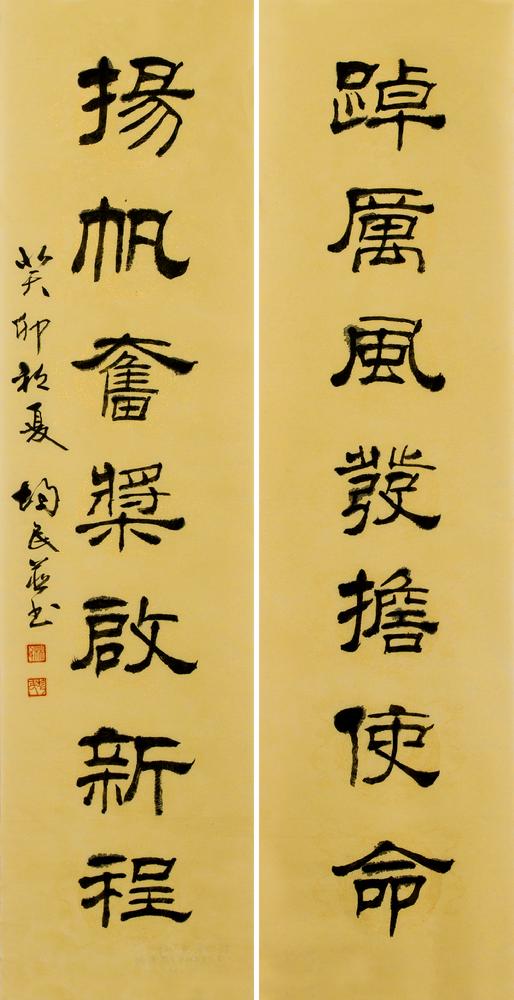 踔厲風發擔使命
揚帆奮槳啟新程
癸卯初夏 均民 书